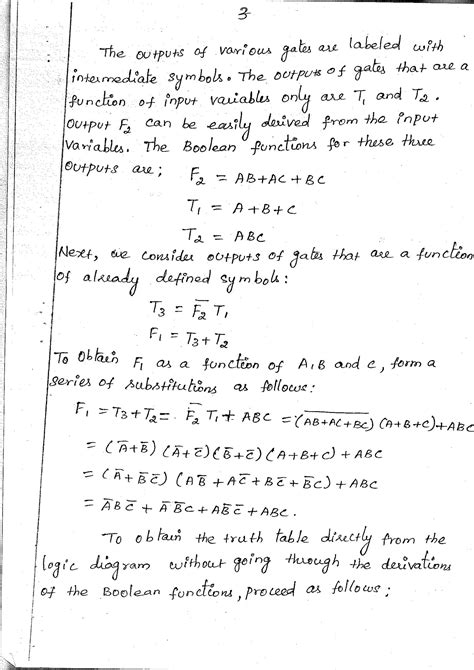 3
The outputs of various gates are labeled with
intermediate symbols. The outputs of gates that are a
function of input variables only are T₁ and T₂.
Output F₂ can be easily derived from the input
variables. The Boolean functions for these three
outputs are;
F₂ = AB+AC+BC
T₁ = A+B+C
T₂ = ABC
Next, we consider outputs of gates that are a function
of already defined symbols:
T₃ = F̅₂ T₁
F₁ = T₃+T₂
To Obtain F₁ as a function of A,B and C, form a
series of substitutions as follows:
F₁ = T₃+T₂ = F̅₂ T₁ + ABC = (A̅B̅+̅A̅C̅+̅B̅C̅) (A+B+C)+ABC
= (A̅+B̅) (A̅+C̅) (B̅+C̅) (A+B+C) + ABC
= (A̅+B̅C̅) (AB̅ + AC̅ + BC̅ + B̅C) + ABC
= A̅BC̅ + A̅B̅C + AB̅C̅ + ABC.
To obtain the truth table directly from the
logic diagram without going through the derivations
of the Boolean functions, proceed as follows;